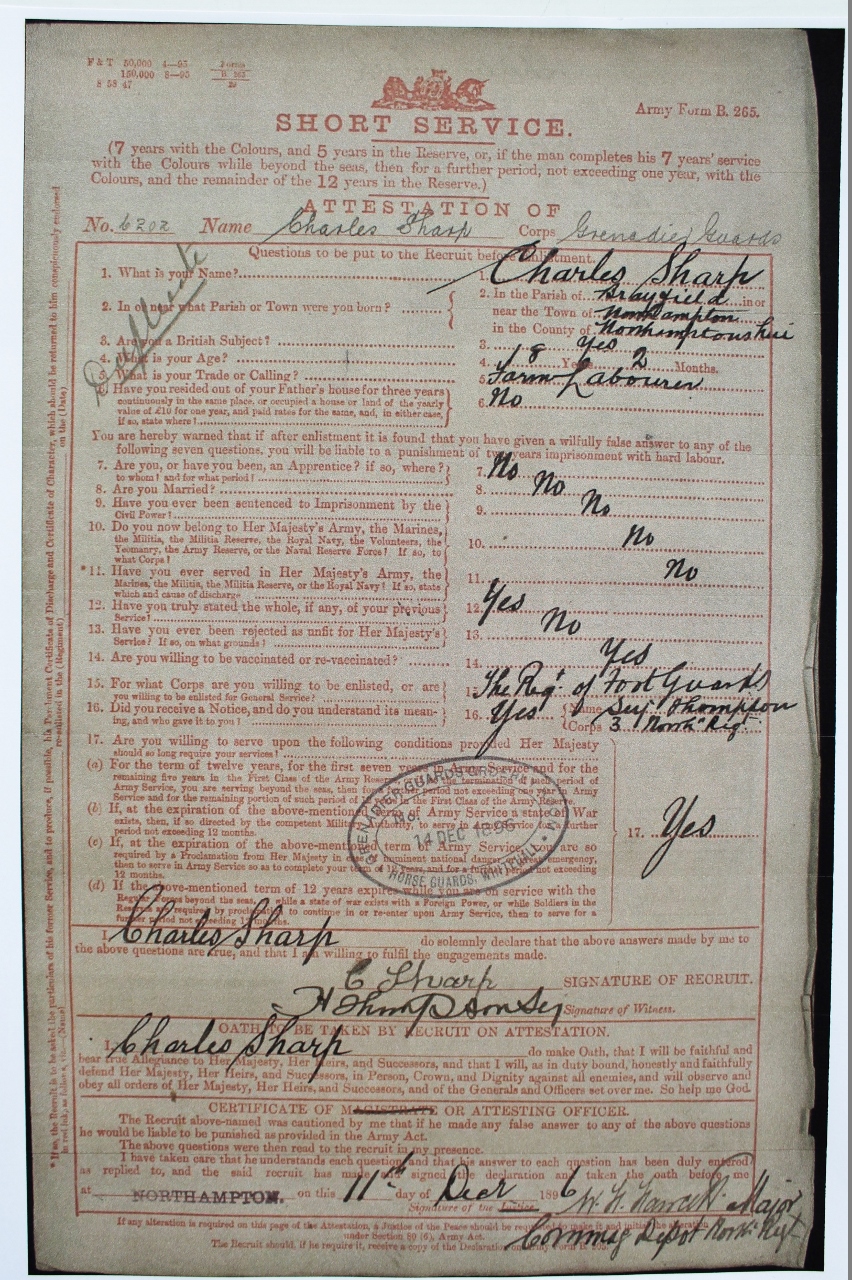 F & T 50,000 4—95 Forms
150,000 8—95 B. 265
S 58 47
Army Form B. 265.
SHORT SERVICE.
(7 years with the Colours, and 5 years in the Reserve, or, if the man completes his 7 years' service
with the Colours while beyond the seas, then for a further period, not exceeding one year, with the
Colours, and the remainder of the 12 years in the Reserve.)
ATTESTATION OF
No. 6202 Name Charles Sharp Corps Grenadier Guards
Duplicate
Questions to be put to the Recruit before Enlistment.
1. What is your Name? 1. Charles Sharp
2. In or near what Parish or Town were you born? 2. In the Parish of in or
near the Town of Northampton
in the County of Northamptonshire
3. Are you a British Subject? 3. Yes
4. What is your Age? 4. 18 Years 2 Months.
5. What is your Trade or Calling? 5. Farm Labourer
6. Have you resided out of your Father's house for three years 6. No
continuously in the same place, or occupied a house or land of the yearly
value of £10 for one year, and paid rates for the same, and, in either case,
if so, state where?
You are hereby warned that if after enlistment it is found that you have given a wilfully false answer to any of the
following seven questions, you will be liable to a punishment of two years imprisonment with hard labour.
7. Are you, or have you been, an Apprentice? if so, where? 7. No
to whom? and for what period?
8. Are you Married? 8. No
9. Have you ever been sentenced to Imprisonment by the 9. No
Civil Power?
10. Do you now belong to Her Majesty's Army, the Marines, 10. No
the Militia, the Militia Reserve, the Royal Navy, the Volunteers, the
Yeomanry, the Army Reserve, or the Naval Reserve Force? If so, to
what Corps?
*11. Have you ever served in Her Majesty's Army, the 11. No
Marines, the Militia, the Militia Reserve, or the Royal Navy? If so, state
which and cause of discharge
12. Have you truly stated the whole, if any, of your previous 12. Yes
Service?
13. Have you ever been rejected as unfit for Her Majesty's 13. No
Service? If so, on what grounds?
14. Are you willing to be vaccinated or re-vaccinated? 14. Yes
15. For what Corps are you willing to be enlisted, or are 15. The Regt of Foot Guards
you willing to be enlisted for General Service?
16. Did you receive a Notice, and do you understand its mean- 16. Yes Name Serj Thompson
ing, and who gave it to you? Corps 3 North Regt
17. Are you willing to serve upon the following conditions provided Her Majesty 17. Yes
should so long require your services?
(a) For the term of twelve years, for the first seven years in Army Service and for the
remaining five years in the First Class of the Army Reserve, the termination of such period of
Army Service, you are serving beyond the seas, then for a further period not exceeding one year in Army
Service and for the remaining portion of such period of in the First Class of the Army Reserve.
(b) If, at the expiration of the above-mentioned term of Army Service a state of War
exists, then, if so directed by the competent Military Authority, to serve in Army Service for a further
period not exceeding 12 months.
(c) If, at the expiration of the above-mentioned term of Army Service, you are so
required by a Proclamation from Her Majesty in case of imminent national danger or great emergency,
then to serve in Army Service so as to complete your term of 12 years, and for a further period not exceeding
12 months.
(d) If the above-mentioned term of 12 years expires while you are on service with the
Regular Forces beyond the seas, or while a state of war exists with a Foreign Power, or while Soldiers in the
Reserve are required by proclamation to continue in or re-enter upon Army Service, then to serve for a
further period not exceeding 12 months.
GRENADIER GUARDS
14 DEC 1896
HORSE GUARDS, WHITEHALL
I, Charles Sharp do solemnly declare that the above answers made by me to
the above questions are true, and that I am willing to fulfil the engagements made.
C Sharp SIGNATURE OF RECRUIT.
H Thompson Serj Signature of Witness.
OATH TO BE TAKEN BY RECRUIT ON ATTESTATION.
I, Charles Sharp do make Oath, that I will be faithful and
bear true Allegiance to Her Majesty, Her Heirs, and Successors, and that I will, as in duty bound, honestly and faithfully
defend Her Majesty, Her Heirs, and Successors, in Person, Crown, and Dignity against all enemies, and will observe and
obey all orders of Her Majesty, Her Heirs, and Successors, and of the Generals and Officers set over me. So help me God.
CERTIFICATE OF MAGISTRATE OR ATTESTING OFFICER.
The Recruit above-named was cautioned by me that if he made any false answer to any of the above questions
he would be liable to be punished as provided in the Army Act.
The above questions were then read to the recruit in my presence.
I have taken care that he understands each question and that his answer to each question has been duly entered
as replied to, and the said recruit has made and signed the declaration and taken the oath before me
at NORTHAMPTON. on this 11th day of Decr 1896
Signature of the Justice Major
Commdg Depot North Regt
If any alteration is required on this page of the Attestation, a Justice of the Peace should be requested to make it and initial the alteration
under Section 80 (6), Army Act.
The Recruit should, if he require it, receive a copy of the Declaration on Army Form B. 265.
* If so, the Recruit is to be asked the particulars of his former Service, and to produce, if possible, his Parchment Certificate of Discharge and Certificate of Character, which should be returned to him conspicuously endorsed
in red ink, as follows, viz.—(Name) re-enlisted in the (Regiment) on the (Date)